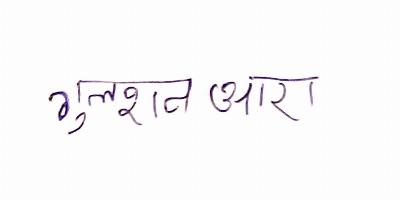 गुलशन आरा